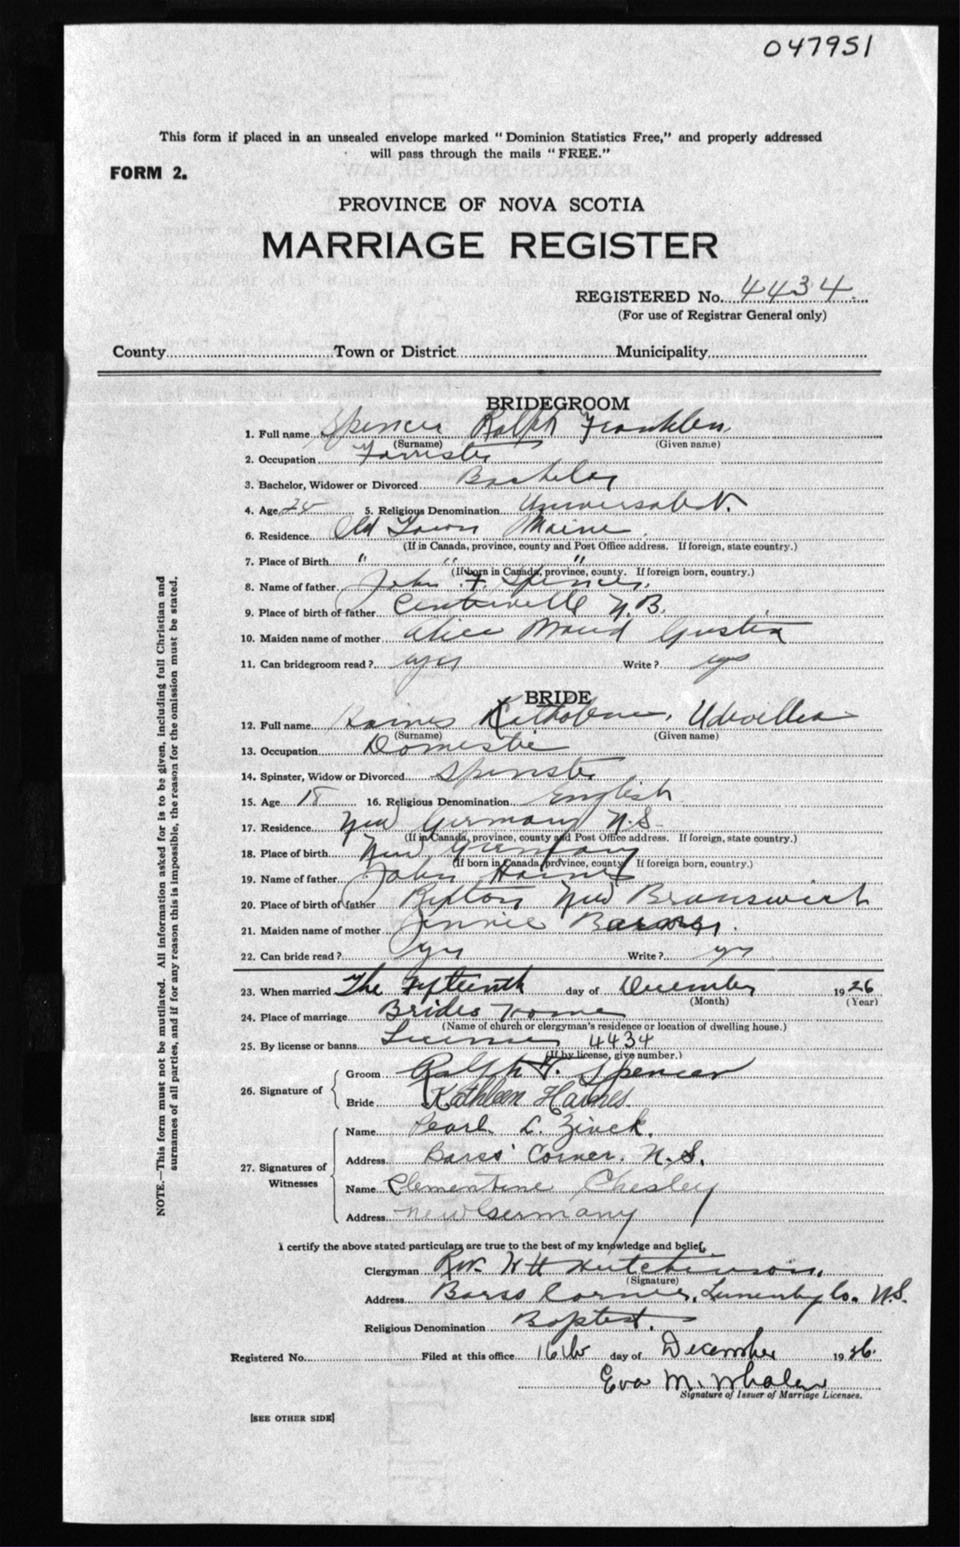 047951
This form if placed in an unsealed envelope marked "Dominion Statistics Free," and properly addressed
will pass through the mails "FREE."
FORM 2.
PROVINCE OF NOVA SCOTIA
MARRIAGE REGISTER
REGISTERED No. 4434
(For use of Registrar General only)
County Town or District Municipality
BRIDEGROOM
1. Full name Spencer Ralph Franklin
(Surname) (Given name)
2. Occupation Forrister
3. Bachelor, Widower or Divorced Bachelor
4. Age 5. Religious Denomination Universalist.
6. Residence Old Town Maine
(If in Canada, province, county and Post Office address. If foreign, state country.)
7. Place of Birth " " "
(If born in Canada, province, county. If foreign born, country.)
8. Name of father John F. Spencer.
9. Place of birth of father Centreville N.B.
10. Maiden name of mother Alice Maud
11. Can bridegroom read? yes Write? yes
BRIDE
12. Full name Haines
(Surname) (Given name)
13. Occupation Domestic
14. Spinster, Widow or Divorced Spinster
15. Age 18 16. Religious Denomination English
17. Residence New Germany N.S.
(If in Canada, province, county and Post Office address. If foreign, state country.)
18. Place of birth New Germany
(If born in Canada, province, county. If foreign born, country.)
19. Name of father John Haines
20. Place of birth of father New Brunswick
21. Maiden name of mother Jennie
22. Can bride read? yes Write? yes
23. When married The Fifteenth day of December 1926
(Month) (Year)
24. Place of marriage Brides Home
(Name of church or clergyman's residence or location of dwelling house.)
25. By license or banns License 4434
(If by license, give number.)
26. Signature of
Groom Ralph F. Spencer
Bride Kathleen Haines
27. Signatures of Witnesses
Name Pearl L. Zinck.
Address Barss' Corner. N.S.
Name Clementine Chesley
Address New Germany
I certify the above stated particulars are true to the best of my knowledge and belief,
Clergyman Rev. W H Hutchinson.
(Signature)
Address Barss Corner, Lunenburg Co. N.S.
Religious Denomination Baptist.
Registered No. Filed at this office 16th day of December 1926.
Eva M. Whalen
Signature of Issuer of Marriage Licenses.
[SEE OTHER SIDE]
NOTE.—This form must not be mutilated. All information asked for is to be given, including full Christian and
surnames of all parties, and if for any reason this is impossible, the reason for the omission must be stated.